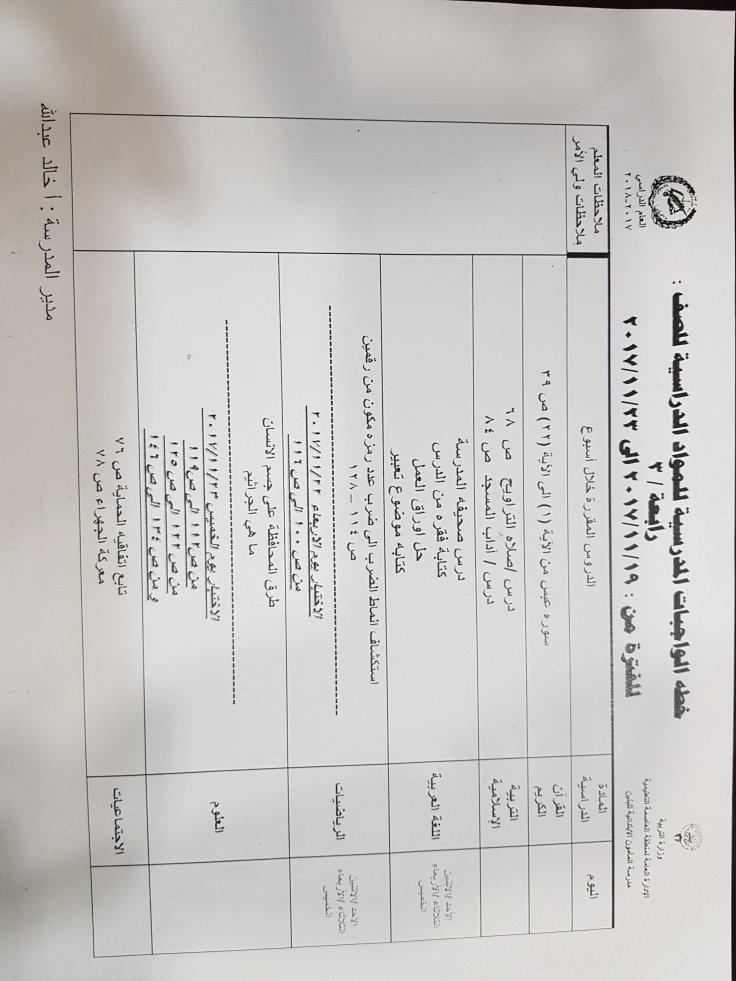 وزارة التربية
الإدارة العامة لمنطقة العاصمة التعليمية
مدرسة المأمون الابتدائية للبنين
العام الدراسي
٢٠١٧-٢٠١٨
خطه الواجبات المدرسية للمواد الدراسية للصف :
رابعة / ٣
للفترة من : ٢٠١٧/١١/١٩ الى ٢٠١٧/١١/٢٣
اليوم
المادة الدراسية
الدروس المقررة خلال أسبوع
ملاحظات المعلم
ملاحظات ولي الأمر
القرآن الكريم
سوره عبس من الآية (١) الى الآية (٢٢) ص ٣٩
التربية الإسلامية
درس /صلاه التراويح ص ٦٨
درس / آداب المسجد ص ٨٤
الاحد /الاثنين
الثلاثاء /الاربعاء
الخميس
اللغة العربية
درس صحيفه المدرسة
كتابة فقره من الدرس
حل اوراق العمل
كتابه موضوع تعبير
الاحد /الاثنين
الثلاثاء /الاربعاء
الخميس
الرياضيات
استكشاف انماط الضرب الى ضرب عدد رمزه مكون من رقمين
ص ١١٤ – ١٢٨
الاختبار يوم الاربعاء ٢٠١٧/١١/٢٢
من ص ١٠٠ الى ص ١١٦
العلوم
طرق المحافظة على جسم الانسان
ما هي الجراثيم
الاختبار يوم الخميس ٢٠١٧/١١/٢٣
من ص١١٢ الى ص١١٩
من ص ١٢٢ الى ص ١٢٥
و من ص ١٣٤ الى ص ١٤٦
الاجتماعيات
تابع اتفاقيه الحماية ص ٧٦
معركة الجهراء ص ٧٨
مدير المدرسة : أ خالد عبدالله